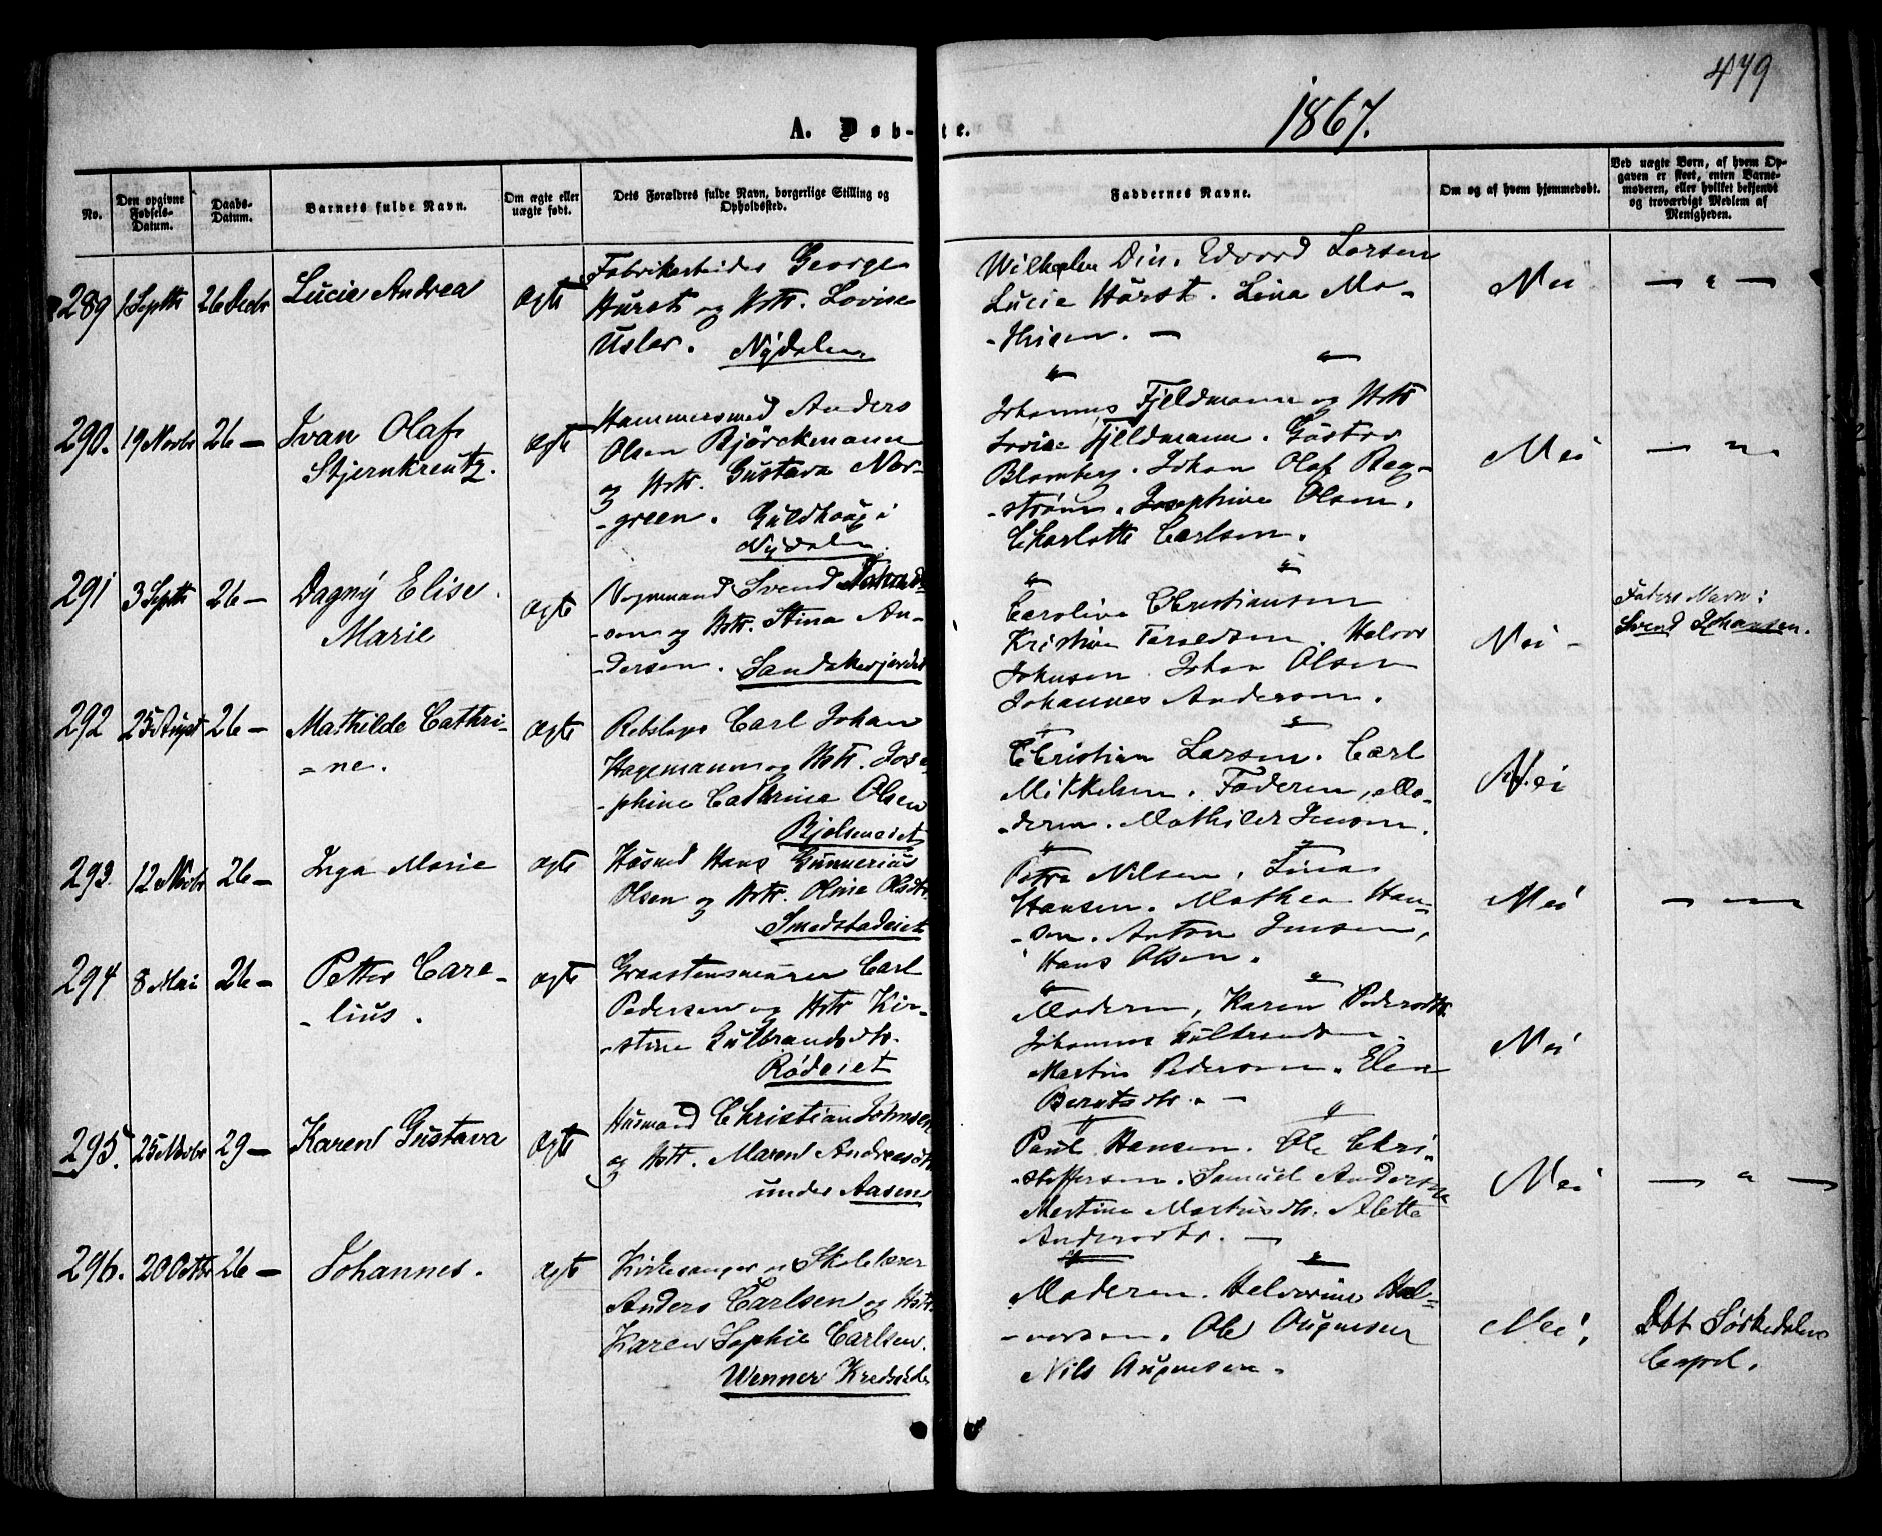 479
1867.
A. Døb- te.
No.
Den opgivne Fødsels-Datum.
Daabs-Datum.
Barnets fulde Navn.
Om ægte eller uægte født.
Dets Forældres fulde Navn, borgerlige Stilling og Opholdssted.
Faddernes Navne.
Om og af hvem hjemmedøbt.
Ved uægte Børn, af hvem Opgaven er skeet, enten Barnemoderen, eller hvilket bekjendt og troværdigt Medlem af Menigheden.
289 1 Septbr 26 Decbr Lucie Andrea ægte
Fabrikarbeider George
Hurst og Hstr. Lovise
Usler. Nydalen
Wilhelm Din. Edvard Larsen
Lucie Hurst. Lina Ma-
-thisen. —
Nei — " —
290. 19 Novbr 26 — Ivan Olaf
Stjernkreutz. ægte
Hammersmed Anders
Olsen Bjørckmann
og Hstr. Gustava Nor-
-green. Guldhaug i
Nydalen.
Johannes Fjeldmann og Hstr
Lovise Fjeldmann. Gustav
Blomberg. Johan Olaf Beg-
-strøm. Josephine Olsen.
Charlotte Carlsen.
Nei — "
291 3 Septbr 26 — Dagny Elise
Marie ægte
Svend
-sen og Hstr. Stina An-
-dersen. Sandakerjordet
Caroline Christiansen
Kristine Taraldsen. Halvor
Johnsen. Johan Olsen
Johannes Andersen.
Nei -
Faders Navn:
Svend Johansen.
292 25 August 26 — Mathilde Cathri-
-ne. ægte
Rebslager Carl Johan
Hagemann og Hstr. Jose
-phine Cathrine Olsen
Bjølseneiet
Christian Larsen. Carl
Mikkelsen. Faderen, Mo-
-deren. Mathilde Jensen.
Nei
293. 12 Novbr 26 — Inga Marie ægte
Husmd Hans Gunnerius
Olsen og Hstr. Oline Olsdtr.
Smedstadeiet
Petra Nilsen. Lina
Hansen. Mathea Han-
-sen. Anton Jensen,
Hans Olsen.
Nei —
294 8 Mai 26 — Petter Care-
-lius. ægte
Graastensmurer Carl
Pedersen og Hstr Kir-
-stine Gulbrandsdtr.
Rødeiet
Moderen, Karen Pedersdtr.
Johannes Gulbrandsen.
Martin Pedersen. Elen
Berntsdtr. —
Nei
295. 25 Novbr 29 — Karen Gustava ægte
Husmand Christian Johnsen
og Hstr. Maren Andreasdtr
under Aasen
Paul Hansen. Ole Chri-
-stoffersen. Samuel Andersen
Martine Martinsdtr. Alette
Andersdtr. —
Nei — " —
296. 20 Octbr 26 — Johannes. ægte
Kirkesanger og Skolelærer
Anders Carlsen og Hstr.
Karen Sophie Carlsen.
Wenner Kredsskole
Moderen. Halvorine Hal-
-vorsen. Ole Augunsen
Nils Augunsen.
Nei.
Døbt Sørkedalens
Capel.